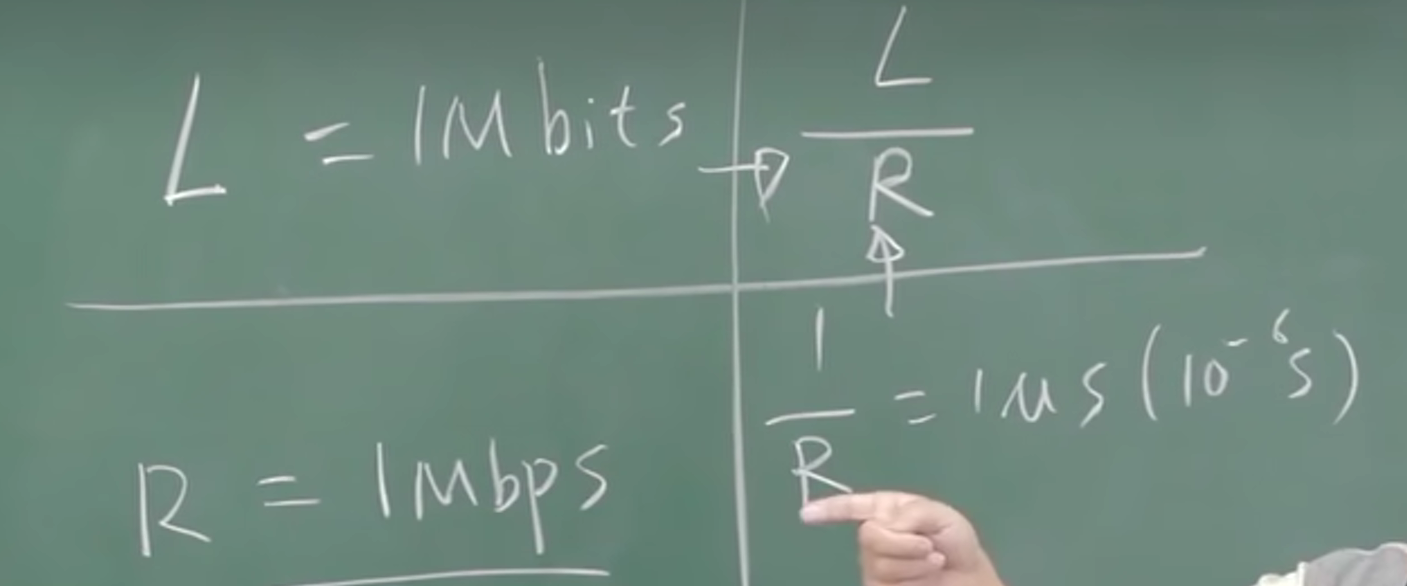 L = 1Mbits
L/R
R = 1Mbps
1/R = 1μs (10⁻⁶s)